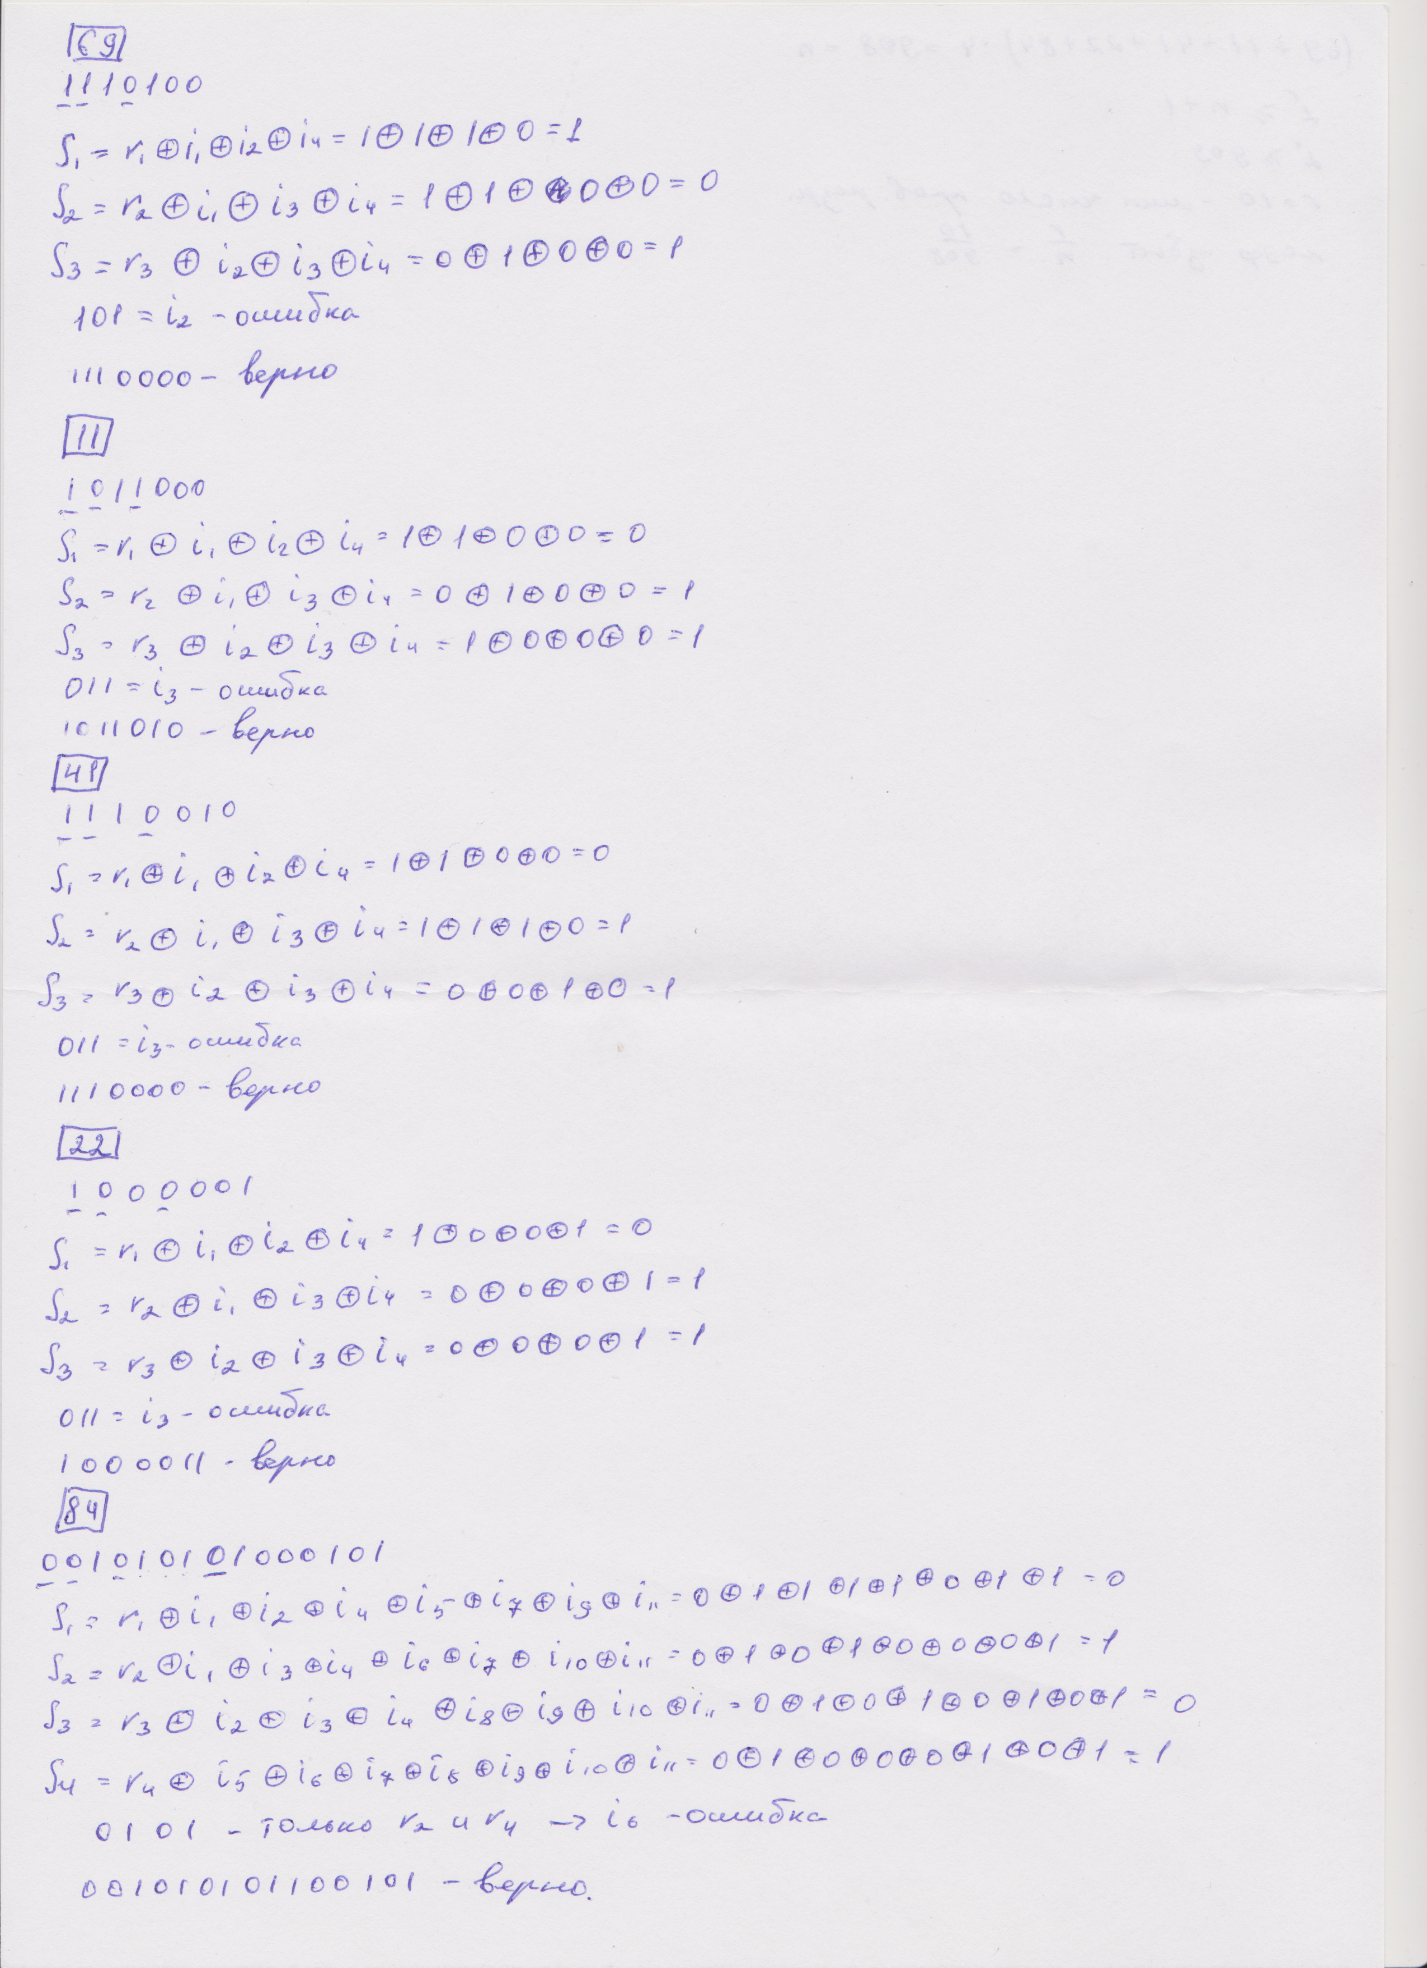 69
1110100
S₁ = r₁ ⊕ i₁ ⊕ i₂ ⊕ i₄ = 1 ⊕ 1 ⊕ 1 ⊕ 0 = 1
S₂ = r₂ ⊕ i₁ ⊕ i₃ ⊕ i₄ = 1 ⊕ 1 ⊕ 0 ⊕ 0 = 0
S₃ = r₃ ⊕ i₂ ⊕ i₃ ⊕ i₄ = 0 ⊕ 1 ⊕ 0 ⊕ 0 = 1
101 = i₂ - ошибка
1110000 - верно
11
1011000
S₁ = r₁ ⊕ i₁ ⊕ i₂ ⊕ i₄ = 1 ⊕ 1 ⊕ 0 ⊕ 0 = 0
S₂ = r₂ ⊕ i₁ ⊕ i₃ ⊕ i₄ = 0 ⊕ 1 ⊕ 0 ⊕ 0 = 1
S₃ = r₃ ⊕ i₂ ⊕ i₃ ⊕ i₄ = 1 ⊕ 0 ⊕ 0 ⊕ 0 = 1
011 = i₃ - ошибка
1011010 - верно
41
1110010
S₁ = r₁ ⊕ i₁ ⊕ i₂ ⊕ i₄ = 1 ⊕ 1 ⊕ 0 ⊕ 0 = 0
S₂ = r₂ ⊕ i₁ ⊕ i₃ ⊕ i₄ = 1 ⊕ 1 ⊕ 1 ⊕ 0 = 1
S₃ = r₃ ⊕ i₂ ⊕ i₃ ⊕ i₄ = 0 ⊕ 0 ⊕ 1 ⊕ 0 = 1
011 = i₃ - ошибка
1110000 - верно
22
1000001
S₁ = r₁ ⊕ i₁ ⊕ i₂ ⊕ i₄ = 1 ⊕ 0 ⊕ 0 ⊕ 1 = 0
S₂ = r₂ ⊕ i₁ ⊕ i₃ ⊕ i₄ = 0 ⊕ 0 ⊕ 0 ⊕ 1 = 1
S₃ = r₃ ⊕ i₂ ⊕ i₃ ⊕ i₄ = 0 ⊕ 0 ⊕ 0 ⊕ 1 = 1
011 = i₃ - ошибка
1000011 - верно
84
001010101000101
S₁ = r₁ ⊕ i₁ ⊕ i₂ ⊕ i₄ ⊕ i₅ ⊕ i₇ ⊕ i₉ ⊕ i₁₁ = 0 ⊕ 1 ⊕ 1 ⊕ 1 ⊕ 1 ⊕ 0 ⊕ 1 ⊕ 1 = 0
S₂ = r₂ ⊕ i₁ ⊕ i₃ ⊕ i₄ ⊕ i₆ ⊕ i₇ ⊕ i₁₀ ⊕ i₁₁ = 0 ⊕ 1 ⊕ 0 ⊕ 1 ⊕ 0 ⊕ 0 ⊕ 0 ⊕ 1 = 1
S₃ = r₃ ⊕ i₂ ⊕ i₃ ⊕ i₄ ⊕ i₈ ⊕ i₉ ⊕ i₁₀ ⊕ i₁₁ = 0 ⊕ 1 ⊕ 0 ⊕ 1 ⊕ 0 ⊕ 1 ⊕ 0 ⊕ 1 = 0
S₄ = r₄ ⊕ i₅ ⊕ i₆ ⊕ i₇ ⊕ i₈ ⊕ i₉ ⊕ i₁₀ ⊕ i₁₁ = 0 ⊕ 1 ⊕ 0 ⊕ 0 ⊕ 0 ⊕ 1 ⊕ 0 ⊕ 1 = 1
0101 - только r₂ и r₄ → i₆ - ошибка
001010101100101 - верно.